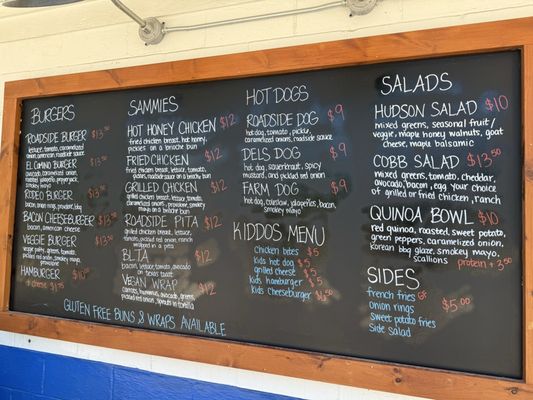 BURGERS
ROADSIDE BURGER $13.50
lettuce, tomato, caramelized
onion, american, roadside sauce
EL CAMINO BURGER $13.50
avocado, caramelized
smoky mayo
RODEO BURGER $13.50
bacon, onion ring, bbq
BACON CHEESEBURGER $13.50
bacon, american cheese
VEGGIE BURGER $13.50
smoky mayo
HAMBURGER $10
+ cheese $1.75
GLUTEN FREE BUNS & WRAPS AVAILABLE
SAMMIES
HOT HONEY CHICKEN $12
fried chicken breast, hot honey,
pickles on a brioche bun
FRIED CHICKEN $12
fried chicken breast, lettuce,
GRILLED CHICKEN $12
grilled chicken breast, lettuce,
on a brioche bun
ROADSIDE PITA $12
grilled chicken breast, lettuce,
tomato, pickled red onion, ranch
BLTA $12
bacon, lettuce, tomato, avocado
on texas toast
VEGAN WRAP $12
carrots, hummus, avocado, greens
pickled red onion, sprouts
in a tortilla
HOT DOGS
ROADSIDE DOG $9
hot dog, tomato, pickle,
caramelized onions, roadside sauce
DELS DOG $9
hot dog, sauerkraut, spicy
mustard, and pickled red onion
FARM DOG $9
hot dog, coleslaw, jalapeños, bacon,
smoky mayo
KIDDOS MENU
Chicken bites $5
kids hot dog $5
grilled cheese $5
Kids hamburger $5
Kids Cheeseburger $6.50
SALADS
HUDSON SALAD $10
mixed greens, seasonal fruit/
veggie, maple honey walnuts, goat
cheese, maple balsamic
COBB SALAD $13.50
mixed greens, tomato, cheddar,
avocado, bacon, egg your choice
of grilled or fried chicken, ranch
QUINOA BOWL $10
red quinoa, roasted, sweet potato,
green peppers, caramelized onion,
Korean bbq glaze, smokey mayo,
scallions protein + 3.50
SIDES
french fries GF
onion rings
sweet potato fries
side salad
$5.00